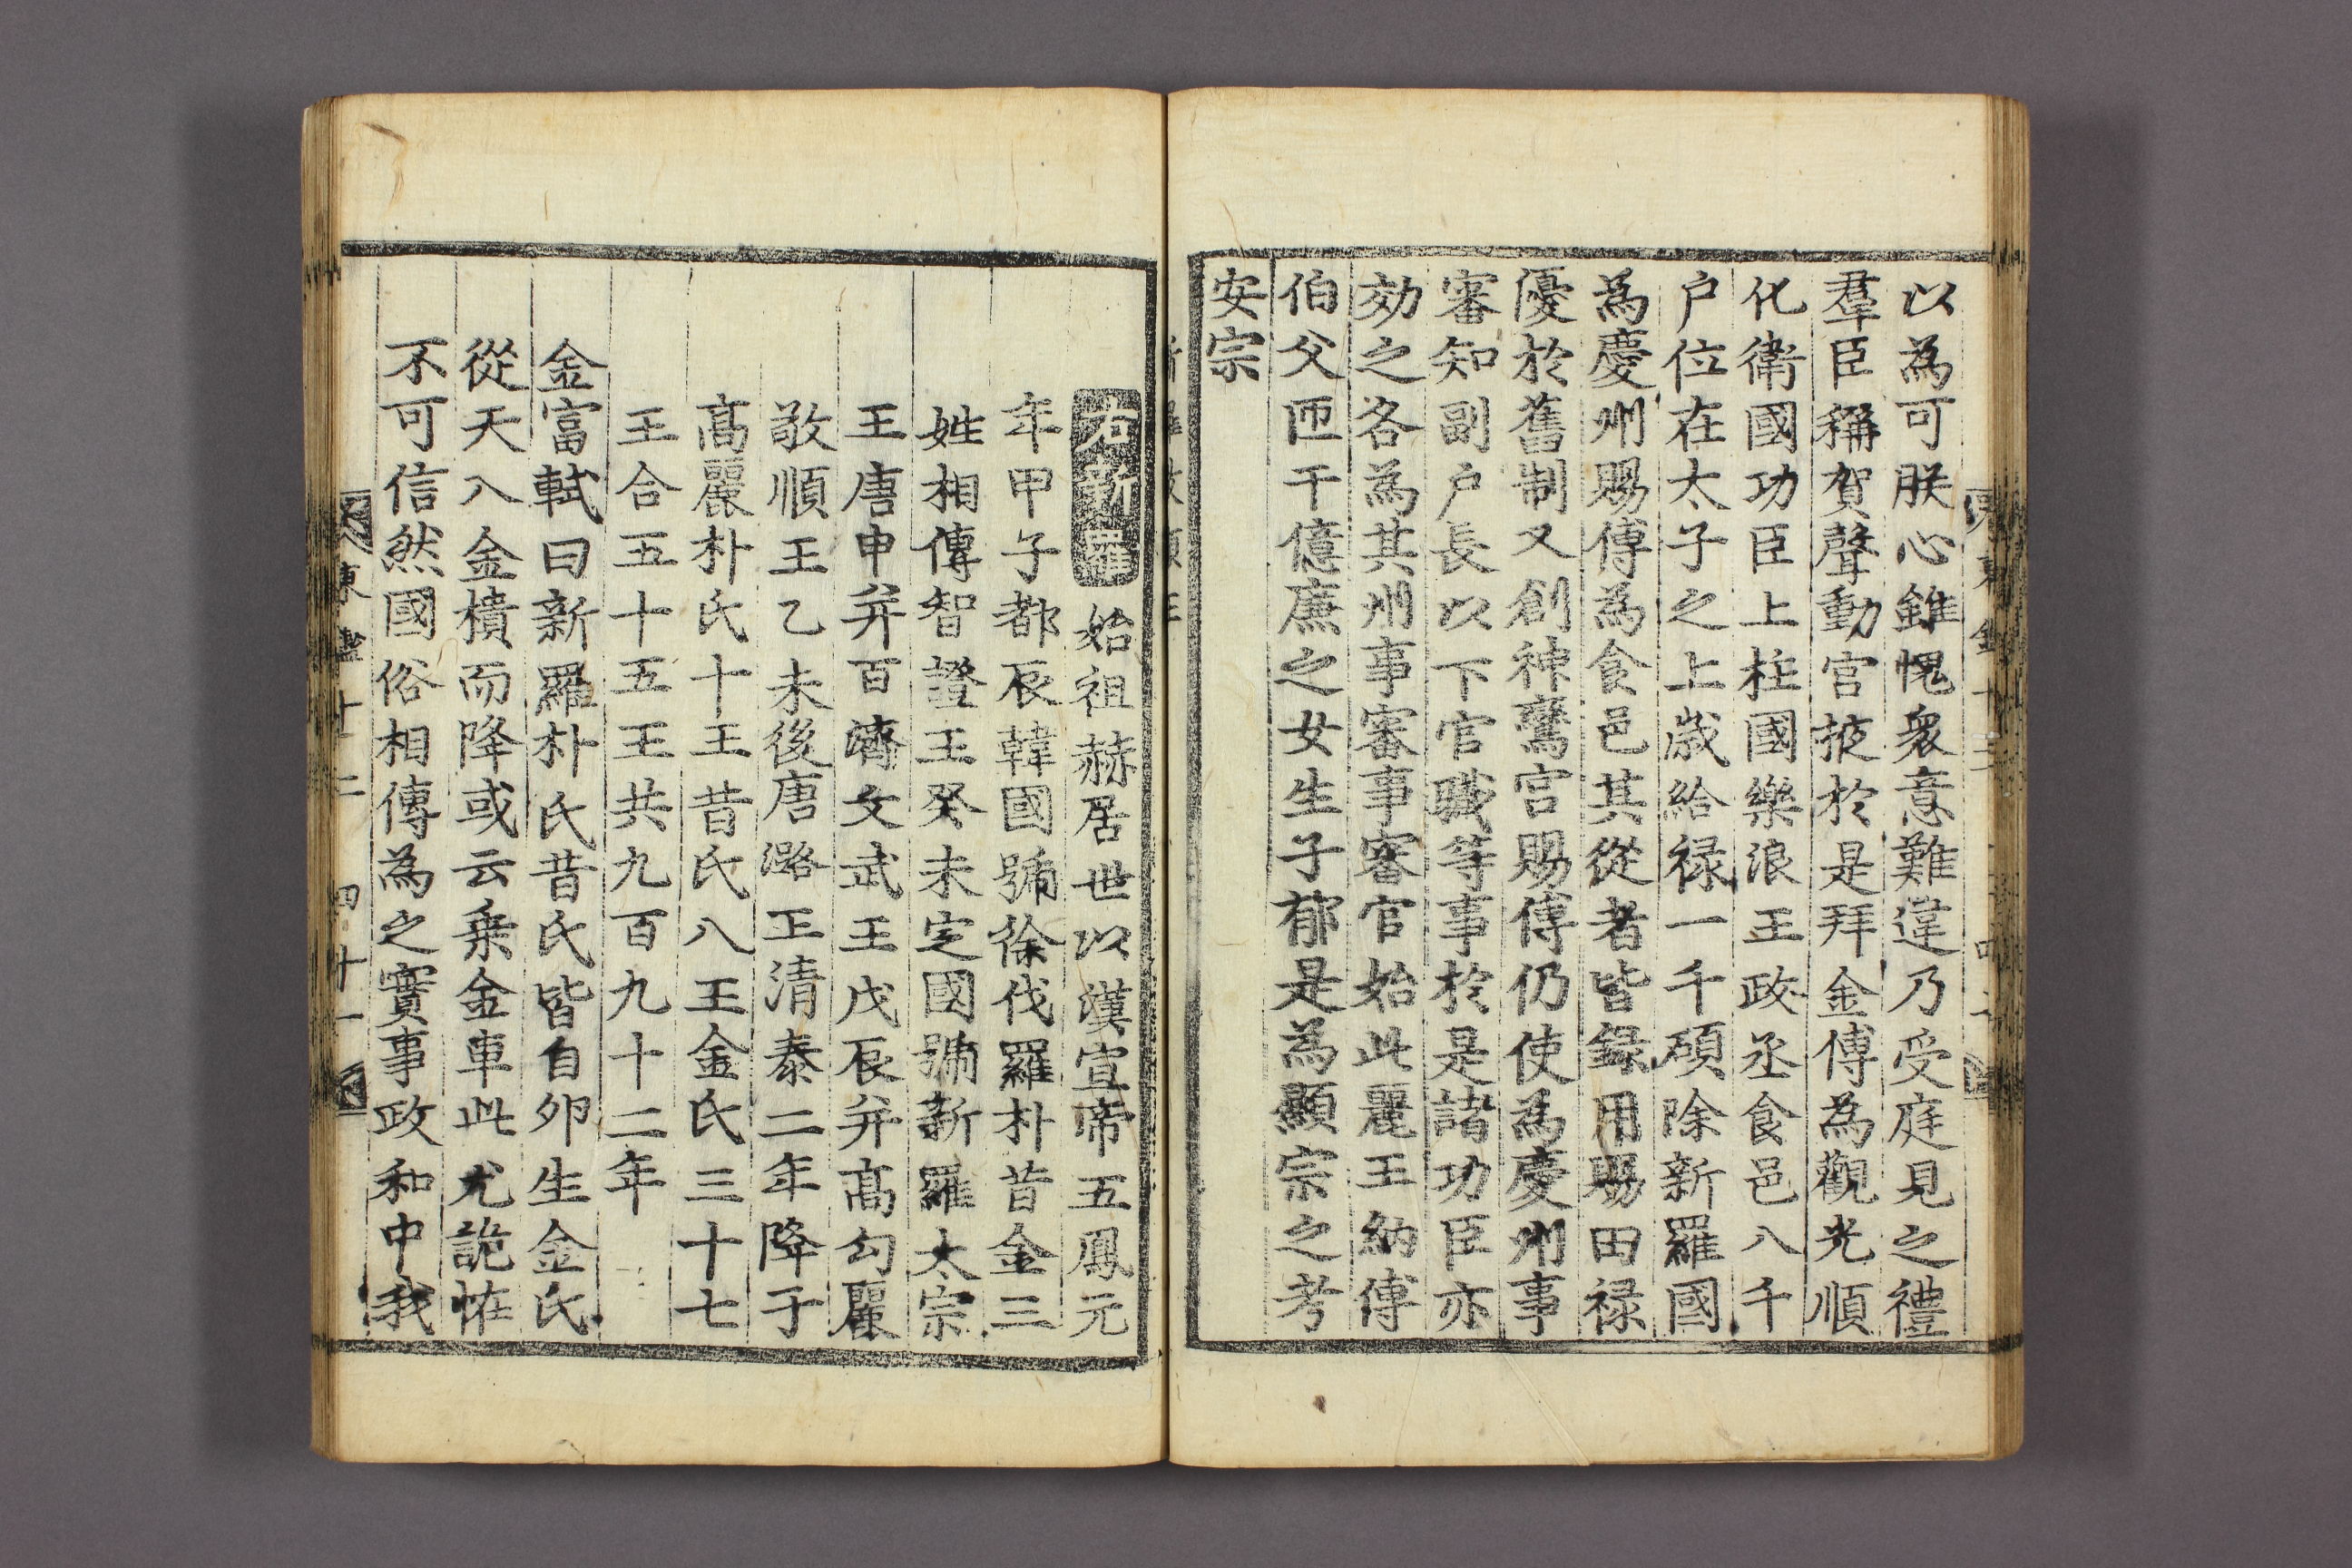 以為可朕心雖愧衆意難違乃受庭見之禮
羣臣稱賀聲動宫掖於是拜金傅為觀光順
化衛國功臣上柱國樂浪王政丞食邑八千
户位在太子之上歲給禄一千碩除新羅國
為慶州賜傅為食邑其從者皆録用賜田禄
優於舊制又創神鸞宫賜傅仍使為慶州事
審知副户長以下官職等事於是諸功臣亦
効之各為其州事審事審官始此麗王納傅
伯父匝干億廉之女生子郁是為顯宗之考
安宗
右新羅始祖赫居世以漢宣帝五鳳元
年甲子都辰韓國號徐伐羅朴昔金三
姓相傳智證王癸未定國號新羅太宗
王唐申并百濟文武王戊辰并髙勾麗
敬順王乙未後唐潞王清泰二年降于
髙麗朴氏十王昔氏八王金氏三十七
王合五十五王共九百九十二年
金富軾曰新羅朴氏昔氏皆自卵生金氏
從天入金櫝而降或云乗金車此尤詭恠
不可信然國俗相傳為之實事政和中我
東鑑十二 四十一